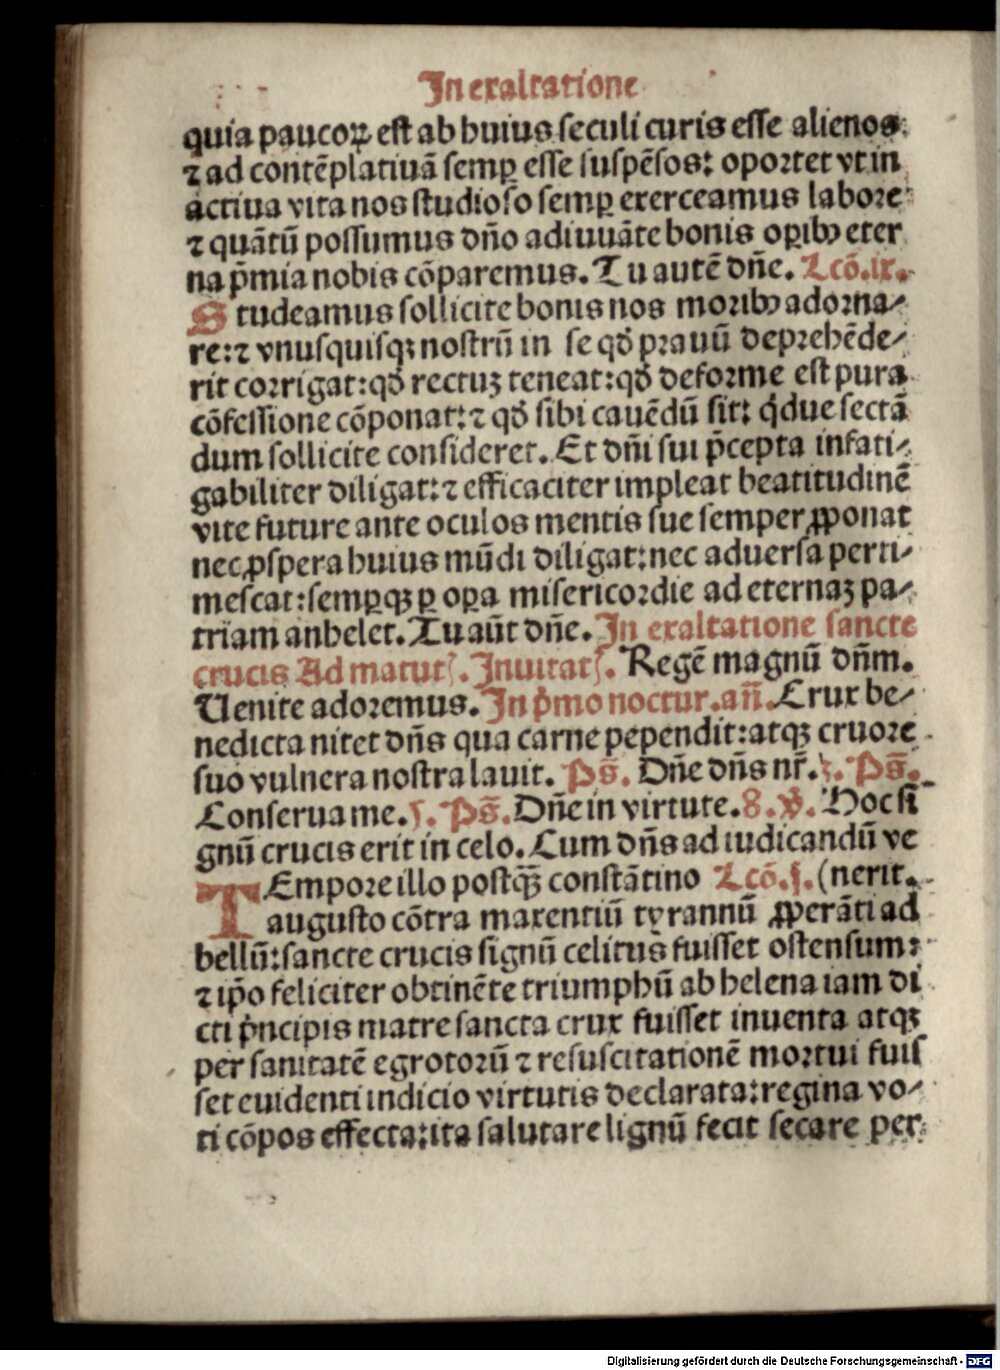 In exaltatione
quia paucoꝝ est ab huius seculi curis esse alienos
⁊ ad contēplatiuā semꝑ esse suspēsos: oportet vt in
actiua vita nos studioso semꝑ exerceamus labore
⁊ quātū possumus dn̄o adiuuāte bonis oꝑibꝰ eter
na p̄mia nobis cōparemus. Tu autē dn̄e. Lcō.ix.
Studeamus sollicite bonis nos moribꝰ adorna⸗
re:⁊ vnusquisqꝫ nostrū in se qd̓ prauū deprehēde⸗
rit corrigat:qd̓ rectuꝫ teneat:qd̓ deforme est pura
cōfessione cōponat:⁊ qd̓ sibi cauēdū sit: q̇due sectā
dum sollicite consideret. Et dn̄i sui p̄cepta infati⸗
gabiliter diligat:⁊ efficaciter impleat beatitudinē
vite future ante oculos mentis sue semper ꝓponat
nec ꝓspera huius mūdi diligat:nec aduersa perti⸗
mescat:semꝑqꝫ ꝑ oꝑa misericordie ad eternaꝫ pa⸗
triam anhelet. Tu aūt dn̄e. In exaltatione sancte
crucis Ad matutꝭ. Inuitatꝭ. Regē magnū dn̄m.
Uenite adoremus. In p̓mo noctur.an̄. Crux be⸗
nedicta nitet dn̄s qua carne pependit:atqꝫ cruore
suo vulnera nostra lauit. Ps̄. Dn̄e dn̄s nr̄. Ps̄.
Conserua me. Ps̄. Dn̄e in virtute.8. ℣. Hoc si
gnū crucis erit in celo. Cum dn̄s ad iudicandū ve
TEmpore illo postqꝫ̄ constātino Lcō.j. (nerit.
augusto cōtra maxentiū tyrannū ꝓperāti ad
bellū:sancte crucis signū celitus fuisset ostensum:
⁊ ip̄o feliciter obtinēte triumphū ab helena iam di
cti p̓ncipis matre sancta crux fuisset inuenta atqꝫ
per sanitatē egrotorū ⁊ resuscitationē mortui fuis
set euidenti indicio virtutis declarata:regina vo⸗
ti cōpos effecta:ita salutare lignū fecit secare per
Digitalisierung gefördert durch die Deutsche Forschungsgemeinschaft - DFG